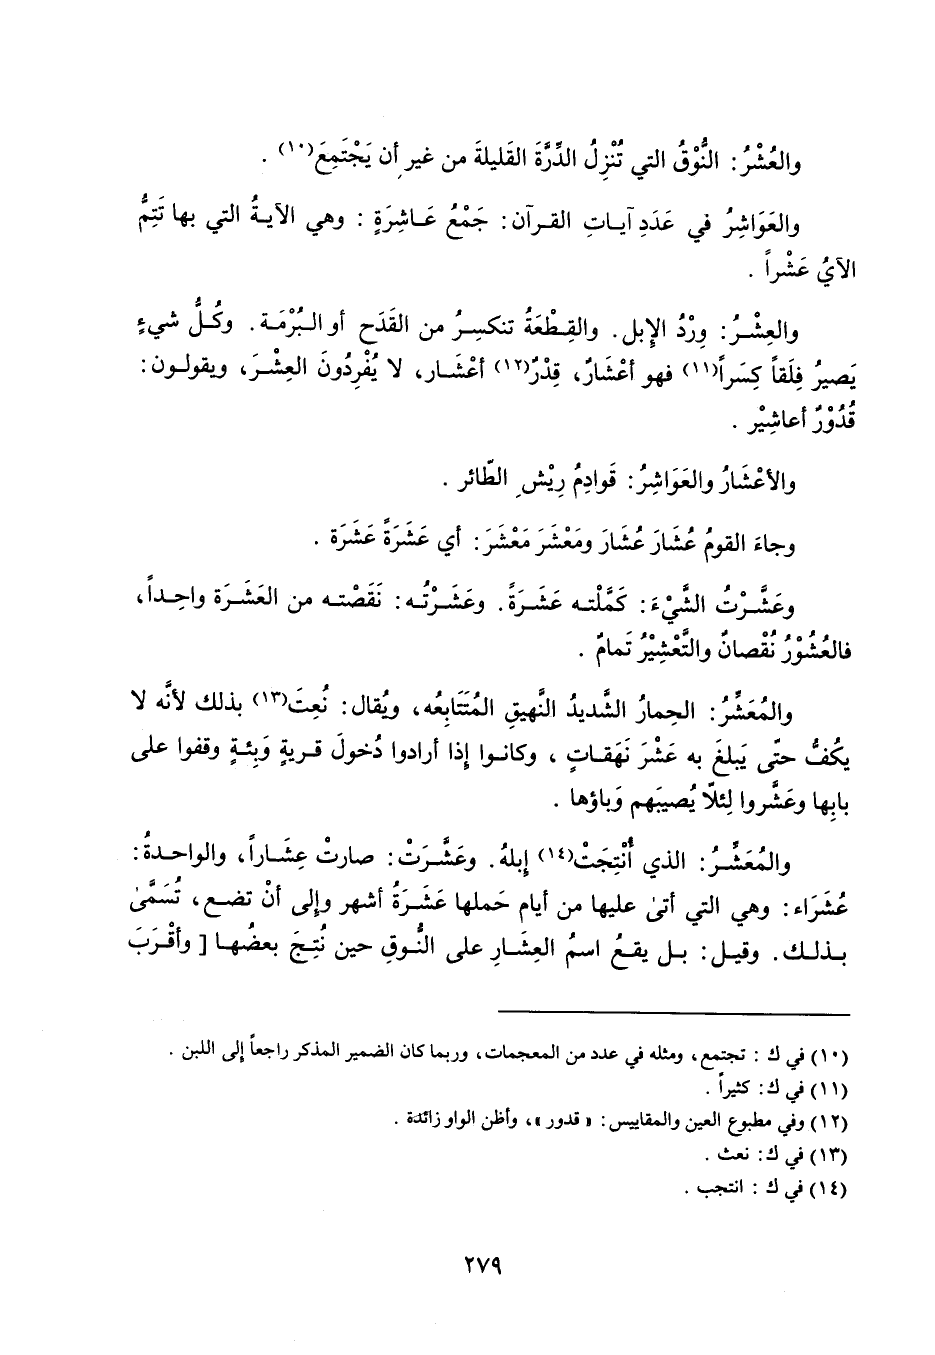 والعُشْرُ: النُّوْقُ التي تُنْزِلُ الدِّرَّةَ القَليلةَ من غير أن يَجْتَمِعَ(١٠) .
والعَوَاشِرُ في عَدَدِ آيـاتِ القـرآن: جَمْعُ عَـاشِرَةٍ : وهي الآيـةُ التي بها تَتِمُّ
الآيُ عَشْراً .
والعِشْـرُ: وِرْدُ الإِبل. والقِـطْعَةُ تنكسِـرُ من القَدَح أو الـبُرْمَـة. وكُـلُّ شيءٍ
يَصيرُ فِلَقاً كِسَراً(١١) فهو أعْشَارٌ، قِدْرٌ(١٢) أعْشَـار، لا يُفْرِدُونَ العِشْـرَ، ويقولـون:
قُدُوْرٌ أعاشِيْر .
والأعْشَارُ والعَوَاشِرُ: قَوادِمُ رِيْشِ الطّائر .
وجاءَ القومُ عُشَارَ عُشَارَ ومَعْشَرَ مَعْشَرَ: أي عَشَرَةً عَشَرَة .
وعَشَّـرْتُ الشَّيْءَ: كَمَّلْتـه عَشَـرَةً. وعَشَـرْتُـه: نَقَصْتـه من العَشَـرَة واحِـداً،
فالعُشُوْرُ نُقْصانٌ والتَّعْشِيْرُ تَمامٌ .
والمُعَشِّرُ: الحِمارُ الشَّديدُ النَّهيقِ المُتَتَابِعُه، ويُقال: نُعِتَ(١٣) بذلك لأنَّه لا
يكُفُّ حتّى يَبلغَ به عَشْرَ نَهَقـاتٍ ، وكانـوا إذا أرادوا دُخولَ قـريةٍ وَبِئـةٍ وقفوا على
بابِها وعَشَّروا لِئلّا يُصيبَهم وَباؤها .
والمُعَشِّـرُ: الذي أُنْتِجَتْ(١٤) إبلهُ. وعَشَّـرَتْ: صارتْ عِشَـاراً، والواحـدةُ:
عُشَرَاء: وهي التي أتىٰ عليها من أيام حَملها عَشَرَةُ أشهر وإلى أنْ تضـع، تُسَمَّىٰ
بـذلـك. وقيـل: بـل يقـعُ اسمُ العِشَـارِ على النُّـوقِ حين نُتِـجَ بعضُهـا [ وأقْـرَبَ
(١٠) في ك : تجتمع، ومثله في عدد من المعجمات، وربما كان الضمير المذكر راجعاً إلى اللبن .
(١١) في ك: كثيراً .
(١٢) وفي مطبوع العين والمقاييس: « قدور »، وأظن الواو زائدة .
(١٣) في ك: نعث .
(١٤) في ك : انتجب .
٢٧٩